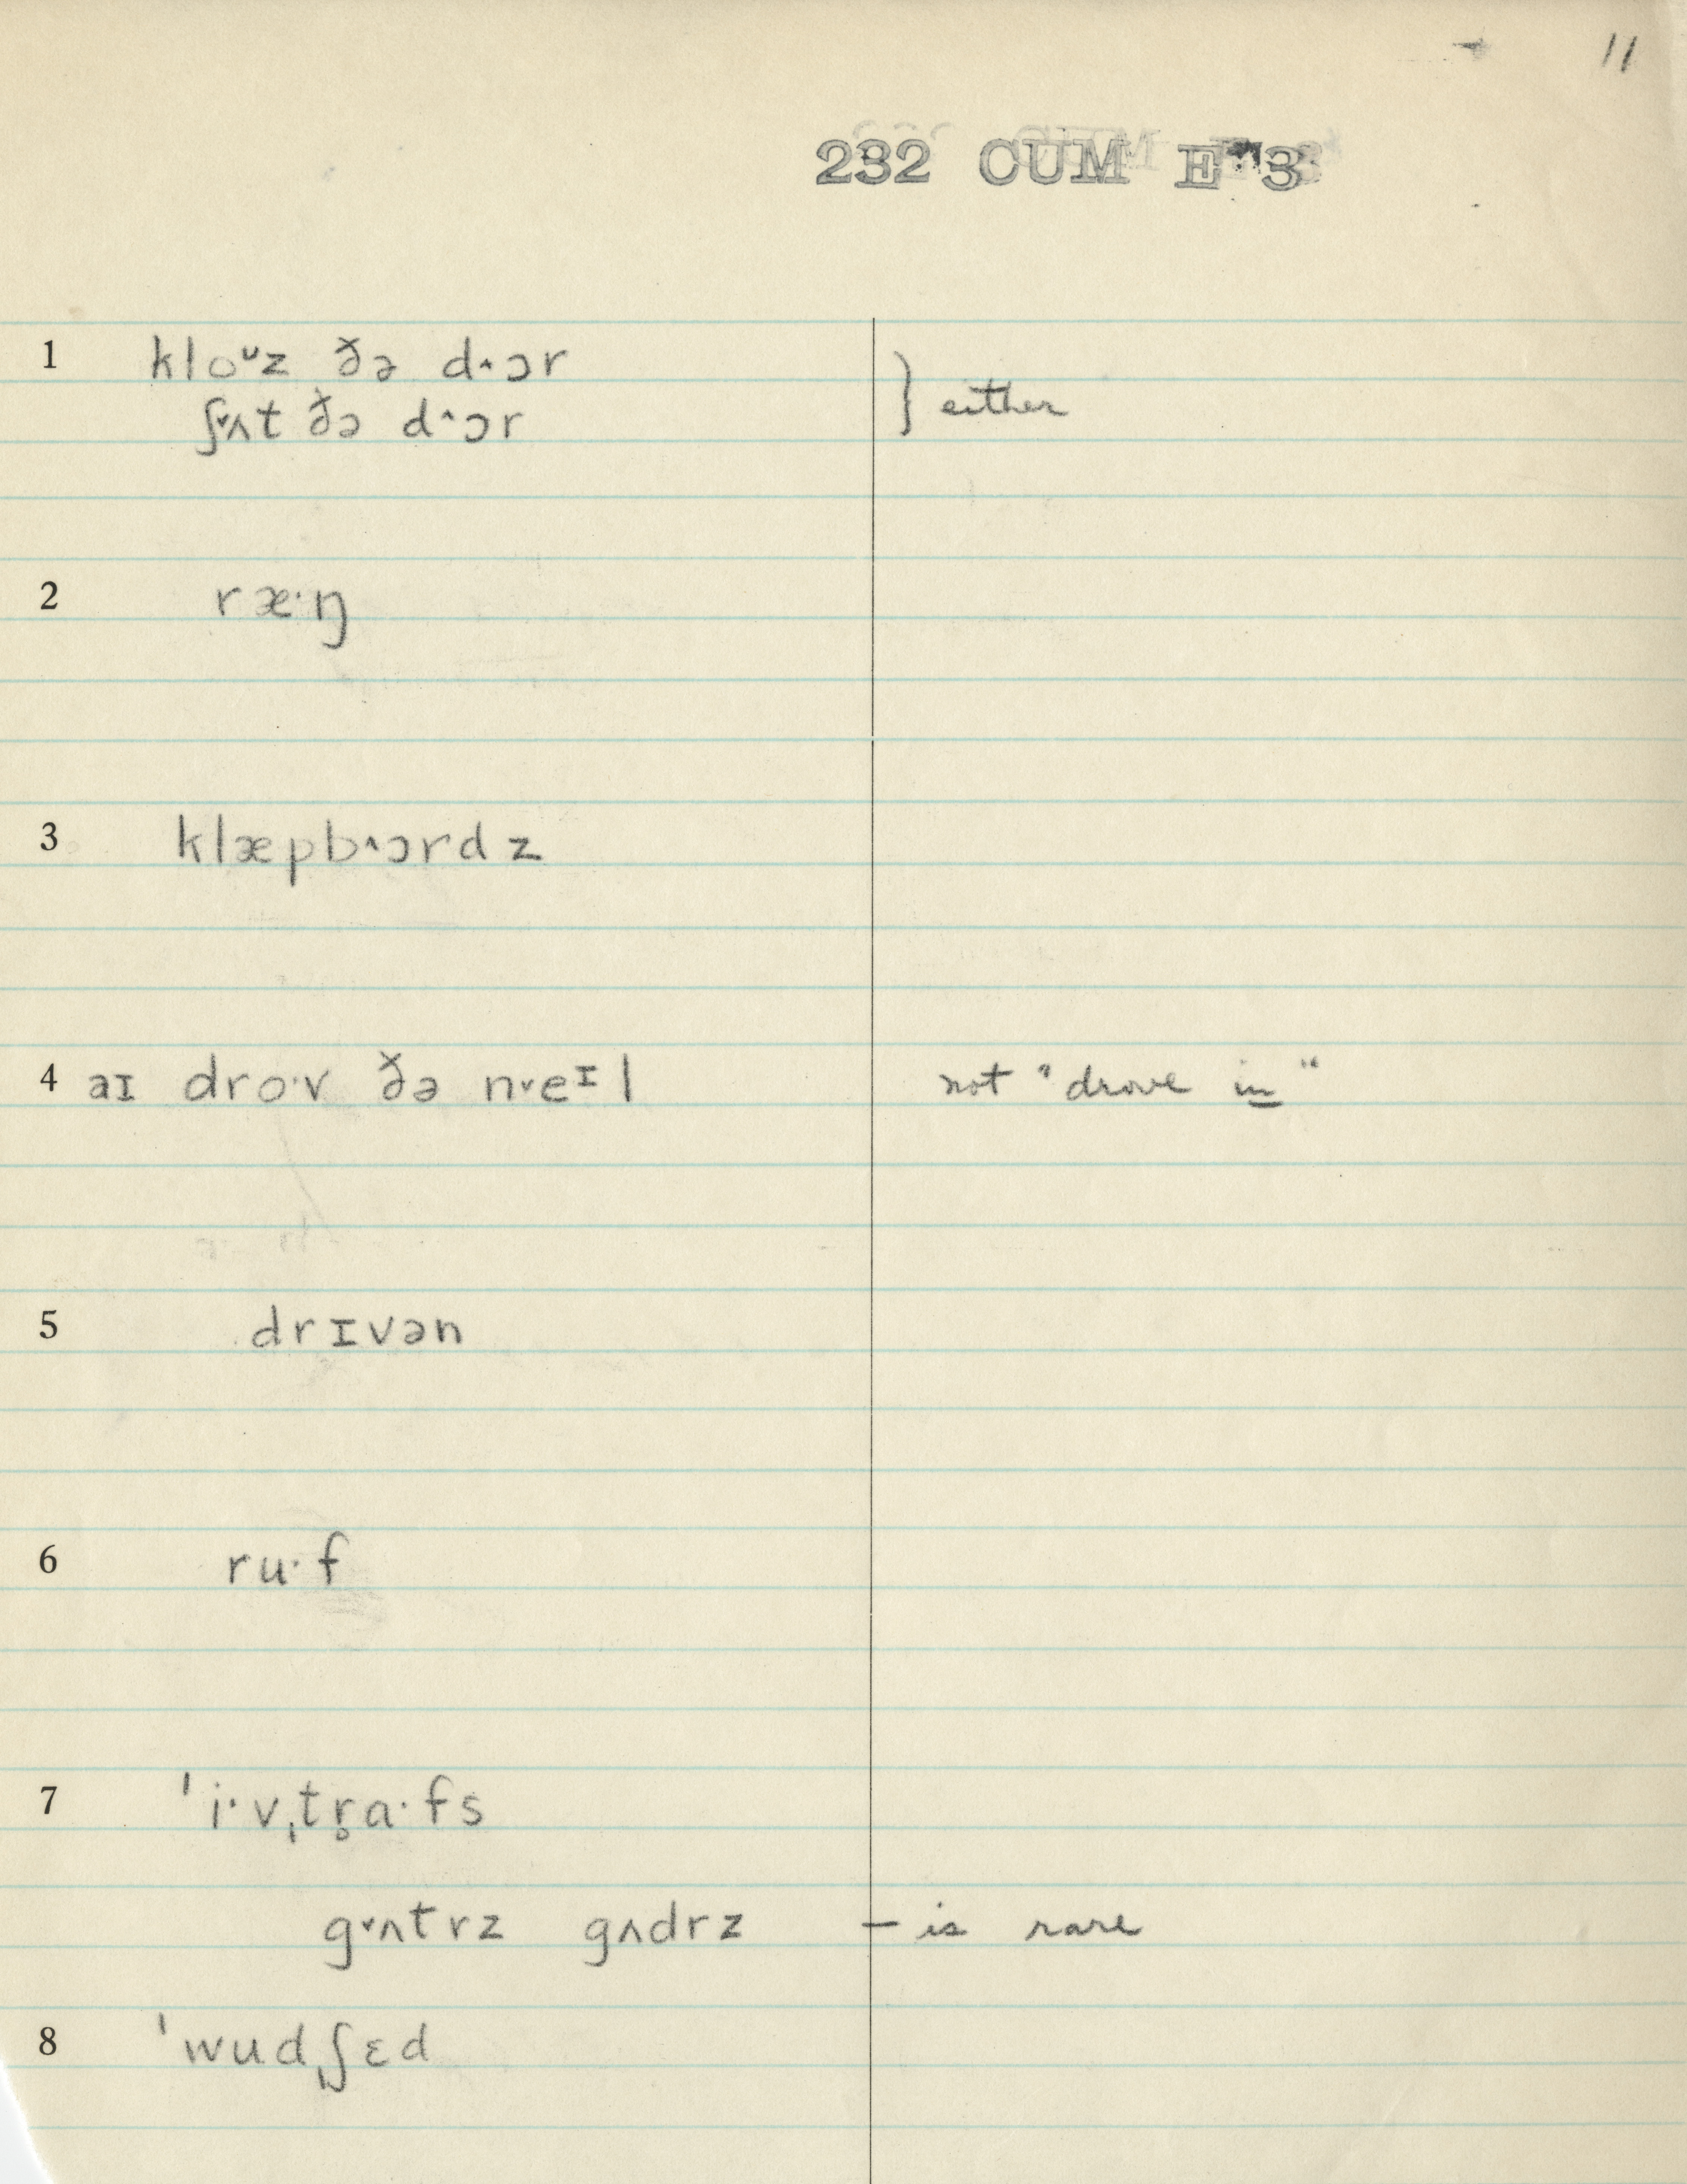 11
232 CUM E 3
1 kloᶷz ðə d˄ɔr } either
ʃ˅ʌt ðə d˄ɔr
2 ræ·ŋ
3 klæpb˄ɔrdz
4 aɪ dro·v ðə n˅eᶦl not "drove in"
5 drɪvən
6 ru·f
7 ˈi·vˌtr̥a·fs
g˅ʌtrz gʌdrz — is rare
8 ˈwudˌʃɛd